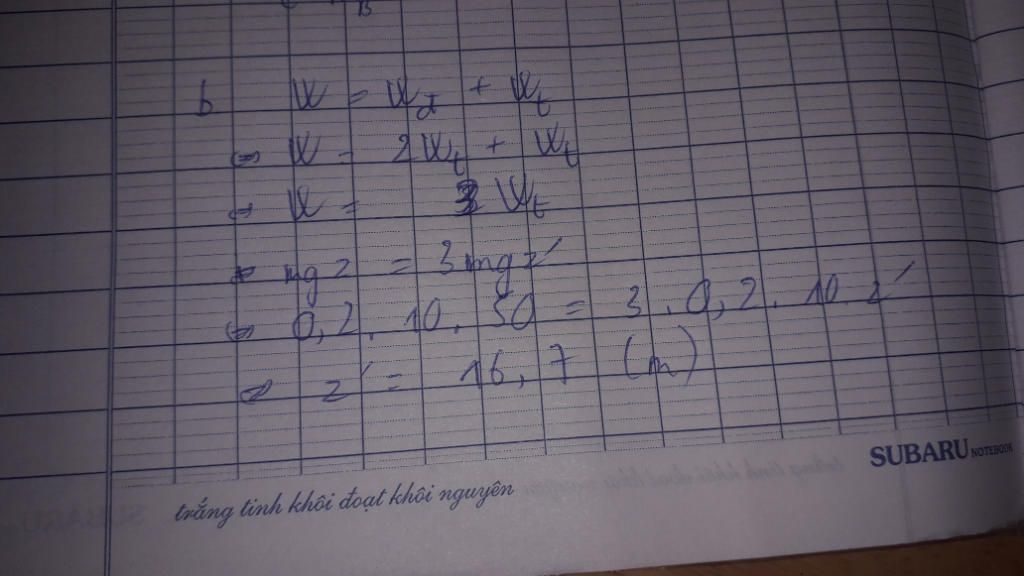 b W = Wđ + Wt
⇔ W = 2Wt + Wt
⇔ W = 3 Wt
⇔ mgz = 3mgz'
⇔ 0,2 . 10 . 50 = 3 . 0,2 . 10 . z'
⇔ z' = 16,7 (m)
SUBARU NOTEBOOK
trắng tinh khôi đoạt khôi nguyên